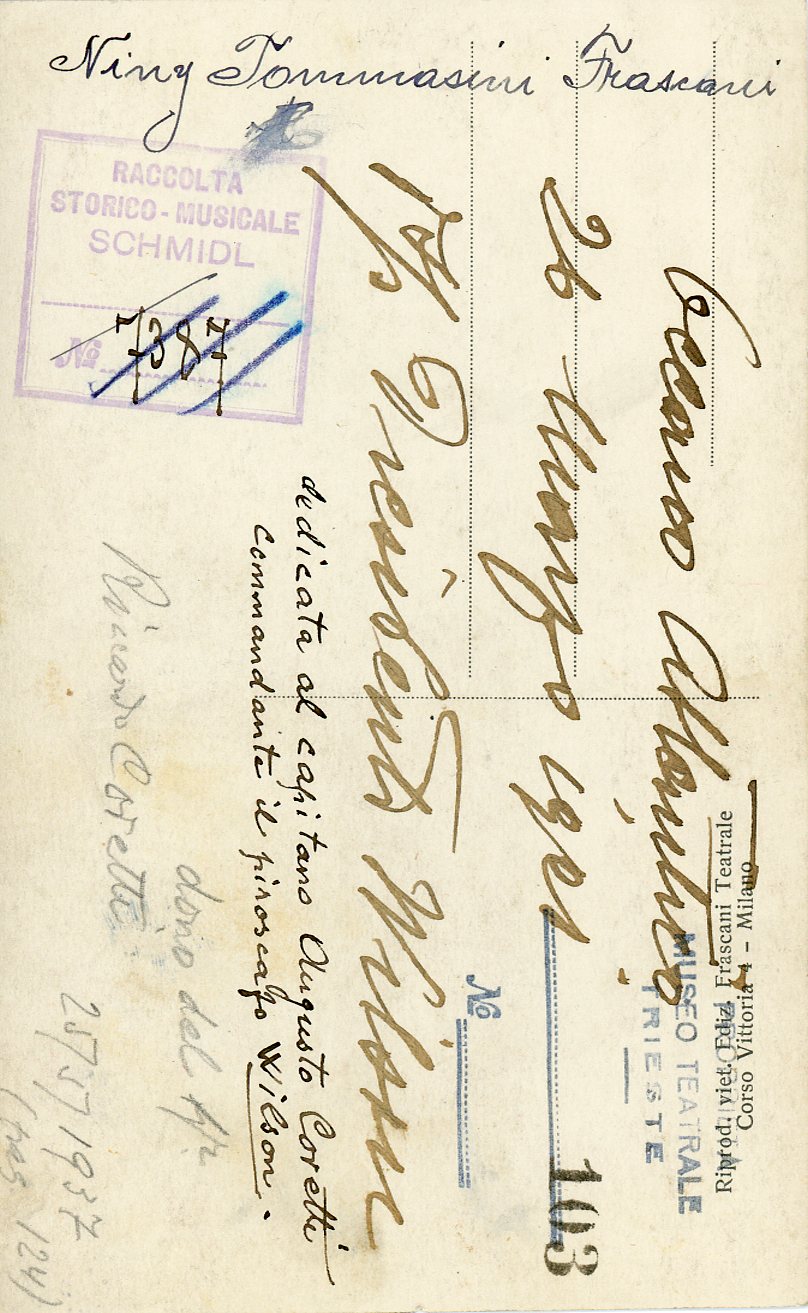 Niny Tommasini Frascani
RACCOLTA
STORICO-MUSICALE
SCHMIDL
No
Oceano Atlantico
26 Marzo 1921
Presidente Wilson
dedicata al capitano Augusto Coretti
commandante il piroscafo Wilson.
Riccardo Coretti
dono del
25/5/1937
124)
No
103
MUSEO TEATRALE
TRIESTE
Riprod. viet. Ediz. Frascani Teatrale
Corso Vittoria 4 - Milano